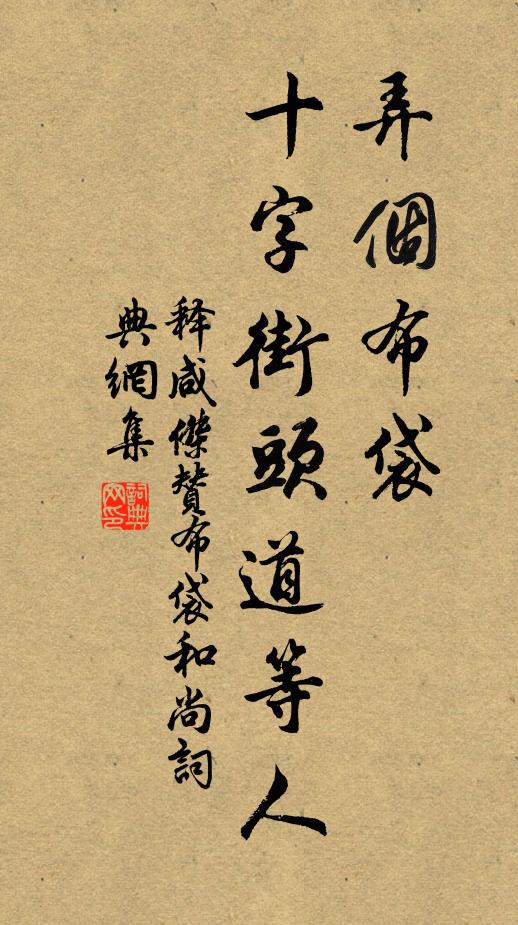 弄個布袋
十字街頭道等人
释咸傑贊布袋和尚詞
典網集
詞典
网印